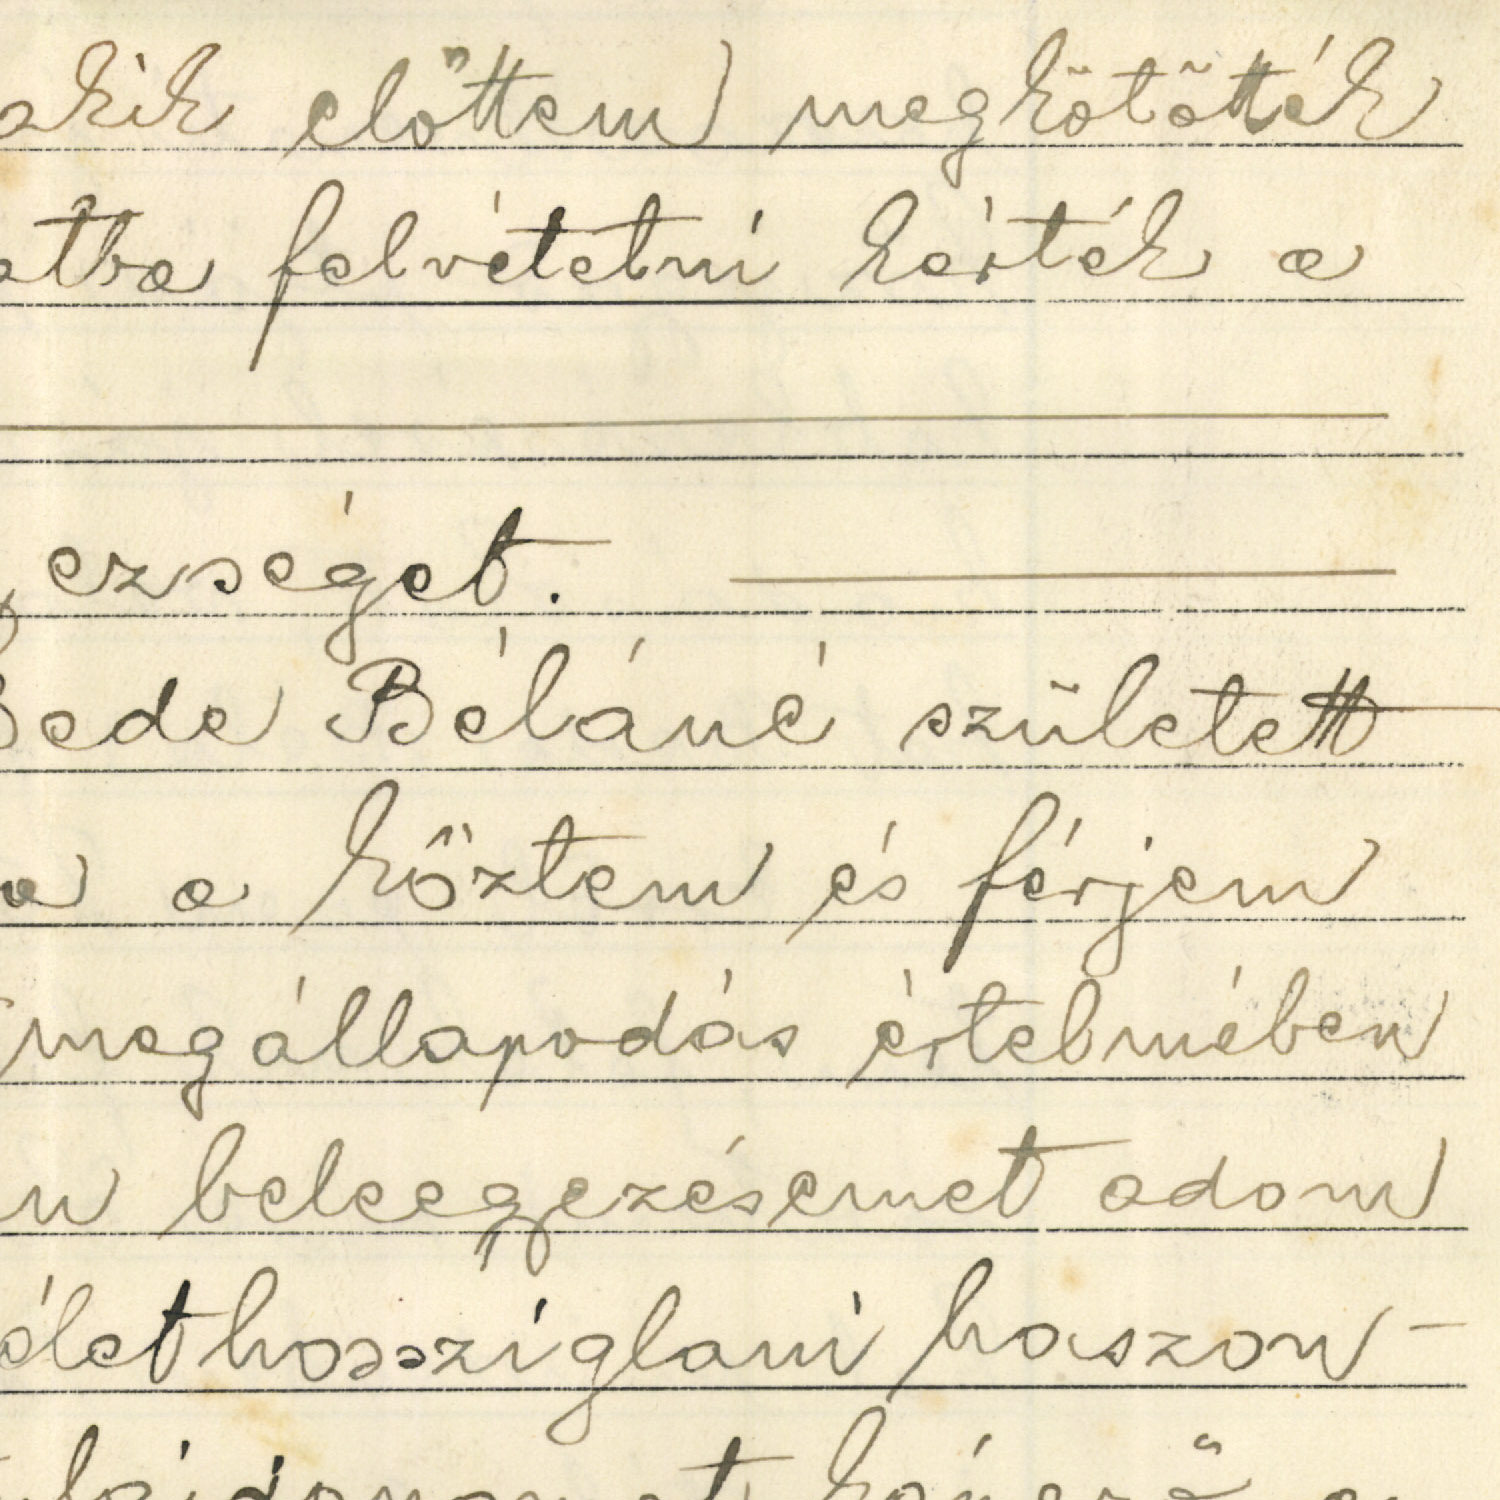 akik előttem megkötötték
atba felvétetni kérték a
ezséget.
Bede Béláné született
a a köztem és férjem
megállapodás értelmében
n beleegyezésemet adom
élethossziglani haszon-